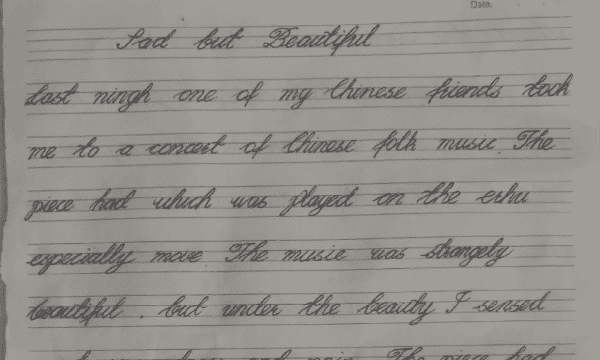 Date.
Sad but Beautiful
Last ningh one of my Chinese friends took
me to a concert of Chinese folk music. The
piece had which was played on the erhu
especially move The music was strangely
beautiful . but under the beauty I sensed
and pain. The piece had